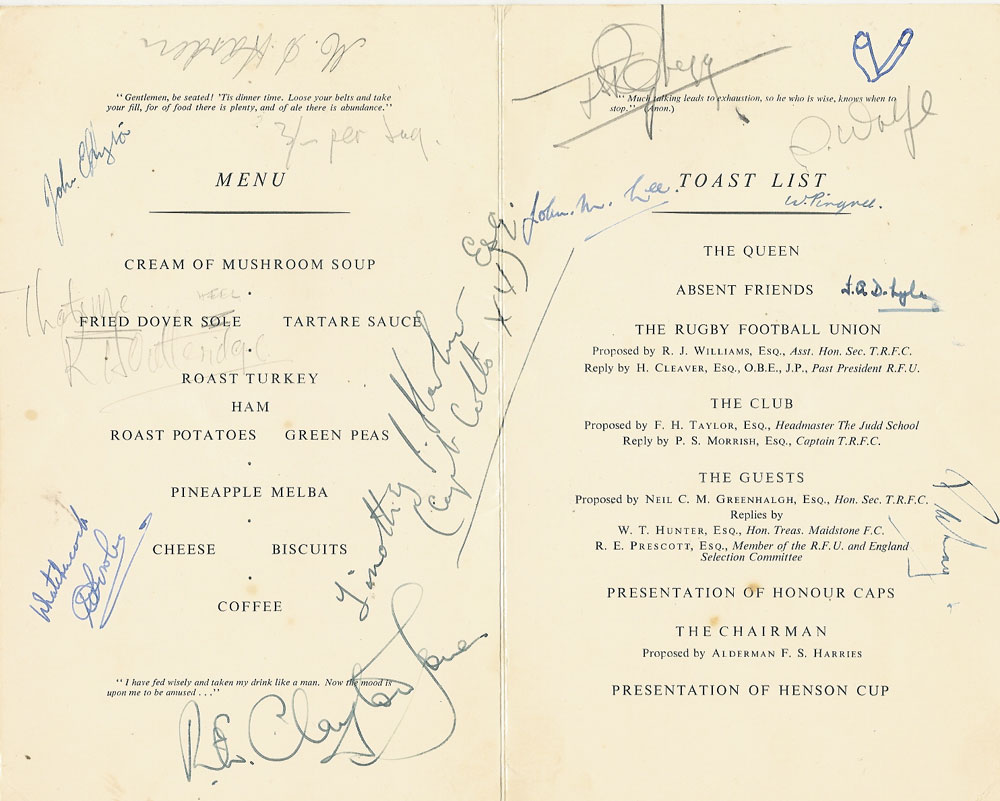 "Gentlemen, be seated! 'Tis dinner time. Loose your belts and take
your fill, for of food there is plenty, and of ale there is abundance."
3/- per
John Clayton
MENU
CREAM OF MUSHROOM SOUP
HEEL
FRIED DOVER SOLE TARTARE SAUCE
ROAST TURKEY
HAM
ROAST POTATOES GREEN PEAS
PINEAPPLE MELBA
CHEESE BISCUITS
COFFEE
"I have fed wisely and taken my drink like a man. Now the mood is
upon me to be amused . . ."
R.E. Clayton
Timothy
Esq.
"Much talking leads to exhaustion, so he who is wise, knows when to
stop." (Anon.)
Wolfe
John. M. Lee.
TOAST LIST
THE QUEEN
ABSENT FRIENDS
THE RUGBY FOOTBALL UNION
Proposed by R. J. WILLIAMS, ESQ., Asst. Hon. Sec. T.R.F.C.
Reply by H. CLEAVER, ESQ., O.B.E., J.P., Past President R.F.U.
THE CLUB
Proposed by F. H. TAYLOR, ESQ., Headmaster The Judd School
Reply by P. S. MORRISH, ESQ., Captain T.R.F.C.
THE GUESTS
Proposed by NEIL C. M. GREENHALGH, ESQ., Hon. Sec. T.R.F.C.
Replies by
W. T. HUNTER, ESQ., Hon. Treas. Maidstone F.C.
R. E. PRESCOTT, ESQ., Member of the R.F.U. and England
Selection Committee
PRESENTATION OF HONOUR CAPS
THE CHAIRMAN
Proposed by ALDERMAN F. S. HARRIES
PRESENTATION OF HENSON CUP